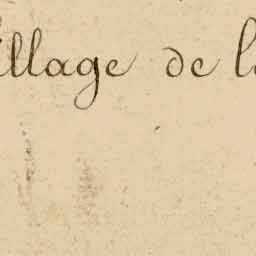 illage de l